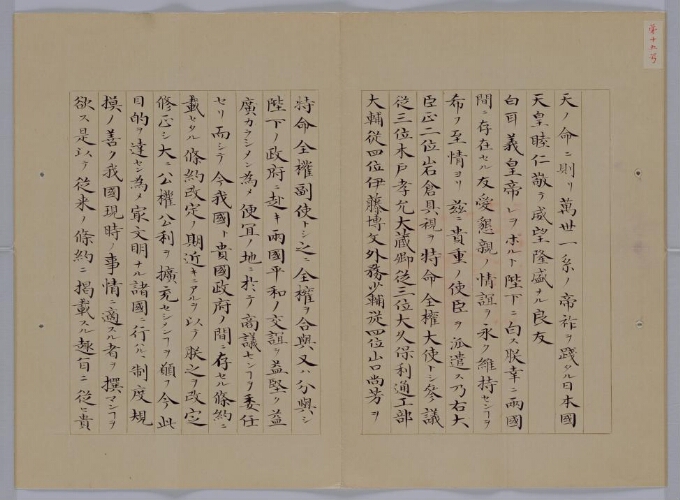 第十九号
天ノ命ニ則リ萬世一系ノ帝祚ヲ踐タル日本國
天皇睦仁敬テ威望隆盛ナル良友
白耳義皇帝レヲホルト陛下ニ白ス朕幸ニ兩國
間ニ存在セル友愛懇親ノ情誼ヲ永ク維持センヿヲ
希フ至情ヨリ茲ニ貴重ノ使臣ヲ派遣ス乃右大
臣正二位岩倉具視ヲ特命全權大使トシ參議
從三位木戸孝允大蔵卿從三位大久保利通工部
大輔從四位伊藤博文外務少輔從四位山口尚芳ヲ
特命全權副使トシ之ニ全權ヲ合與又ハ分與シ
陛下ノ政府ニ赴キ兩國平和ノ交誼ヲ益堅ク益
廣カラシメン為メ便宜ノ地ニ於テ商議センヿヲ委任
セリ而シテ今我國ト貴國政府ノ間ニ存セル條約ニ
載セタル條約改定ノ期近キニアルヲ以テ朕之ヲ改定
修正シ大ニ公權公利ヲ擴充センヿヲ願フ今此
目的ヲ達セン為メ最文明ナル諸國ニ行ハルヽ制度規
摸ノ善ク我國現時ノ事情ニ適スル者ヲ撰マンヿヲ
欲ス是以テ從来ノ條約ニ掲載スル趣旨ニ從ヒ貴